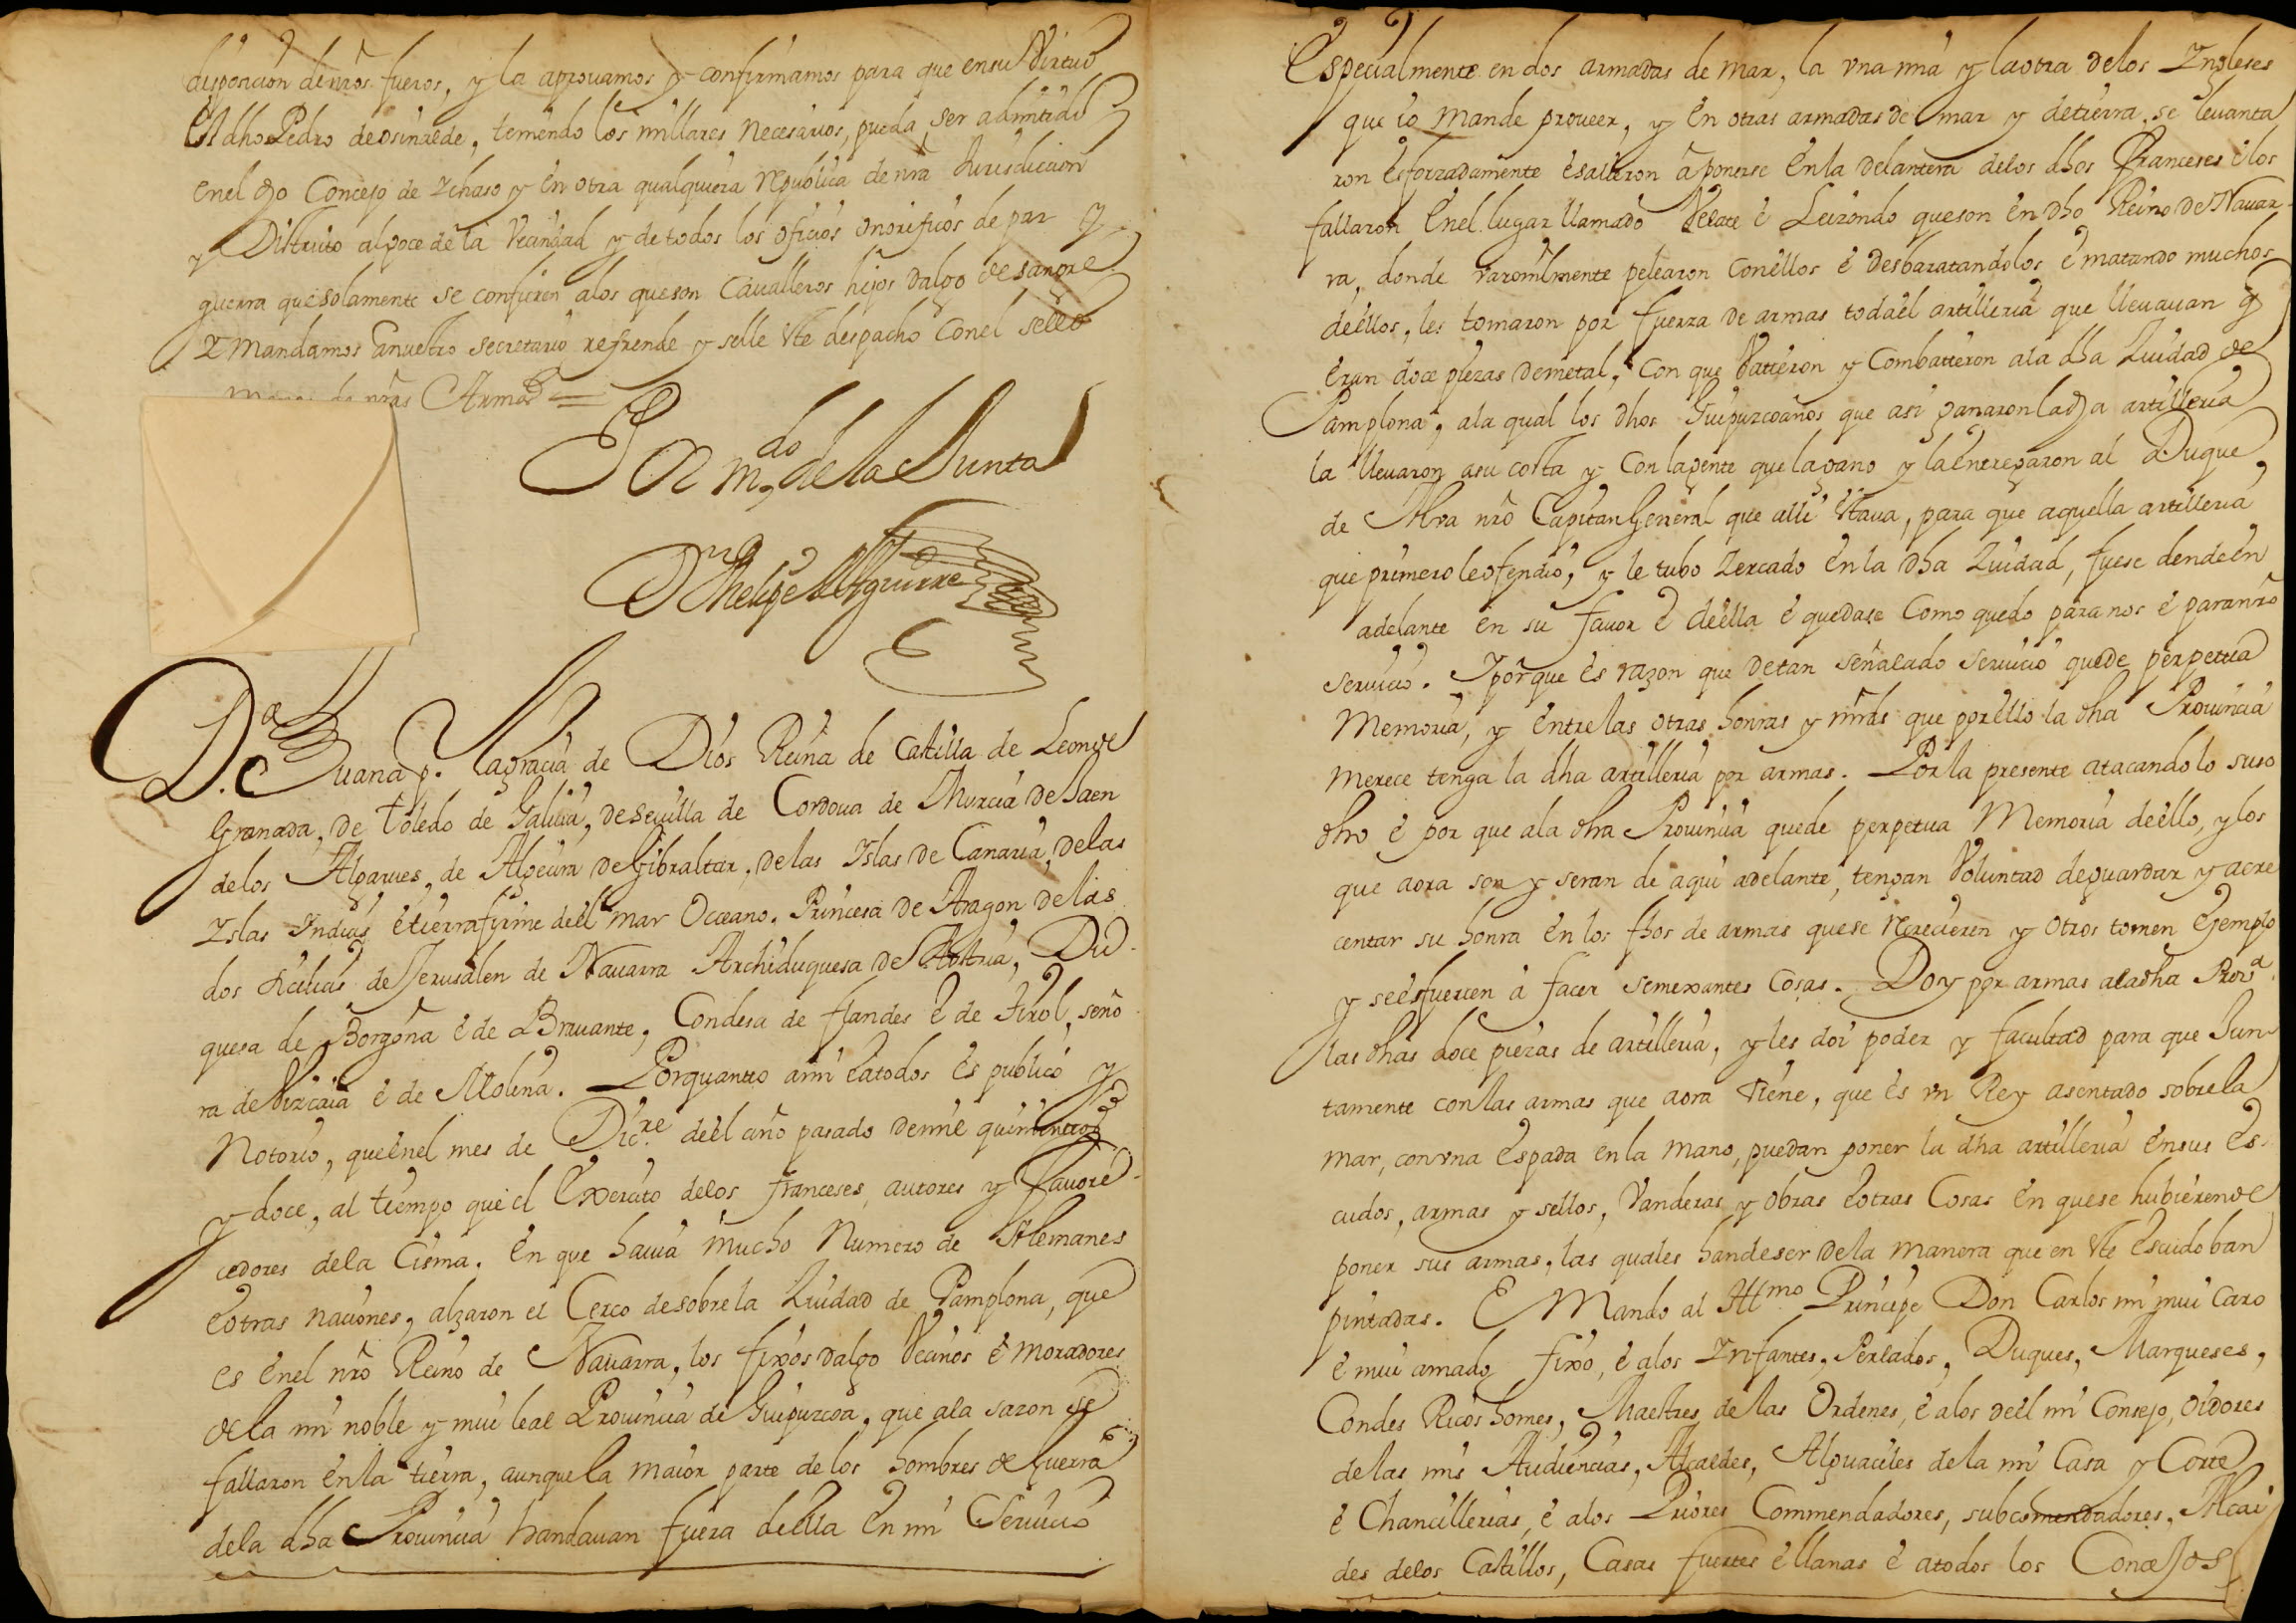 disposicion de nr̃os fueros, y la aprovamos y confirmamos para que en su Virtud
El dho Pedro de osinaede, teniendo los millares necesarios, pueda ser admitido
en el dho Concejo de Ichaso y en otra qualquiera republica de nr̃a Jurisdicion
y Distrito al goce de la Vecindad y de todos los oficios onorificos de paz y
guerra que solamente se confieren a los que son Cavalleros hijos dalgo de sangre
Y mandamos a nuestro secretario refrende y selle este despacho con el sello
de nr̃as Armas =
Por mdo de la Junta
Dn Phelipe de Aguirre
Da. Juana p.r la gracia de Dios Reina de Castilla de Leon de
Granada, de Toledo de Galicia, de Sevilla de Cordova de Murcia de Jaen
de los Algarves, de Algecira de Gibraltar, de las Islas de Canaria, de las
Islas Indias é tierra firme deel mar Occeano. Princesa de Aragon de las
dos Sicilias de Jerusalen de Navarra Archiduquesa de Abstria, Du-
quesa de Borgoña é de Bravante, Condesa de flandes é de Tirol, seño
ra de Vizcaia é de Molina. Por quanto a mi é a todos és publico y
Notorio, que en el mes de Dicre. deel año pasado de mil quinientos
y doce, al tiempo que el Exercito de los franceses, autores y favore-
cedores de la Cisma. en que havia mucho Numero de Alemanes
é otras naciones, alzaron el Cerco de sobre la Ziudad de Pamplona, que
es en el nr̃o Reino de Navarra, los fixos dalgo Vecinos é moradores
de la mi noble y mui leal Provincia de Guipuzcoa, que a la sazon se
fallaron en la tierra, aunque la maior parte de los hombres de Guerra
de la dha Provincia handavan fuera deella en mi Servicio
Especialmente en dos armadas de mar, la una mia y la otra de los Ingleses
que io mande proveer, y en otras armadas de mar y de tierra, se levanta
ron esforzadamente é salieron á ponerse en la delantera de los dhos Franceses é los
fallaron en el lugar llamado Velate é Leizondo que son en dho Reino de Navar-
ra, donde varonilmente pelearon con ellos é desbaratandolos é matando muchos
deellos, les tomaron por fuerza de armas toda el artilleria que llevavan y
eran doce piezas de metal, con que Vatieron y Combatieron a la dha Ziudad de
Pamplona, a la qual los dhos Guipuzcoanos que asi ganaron la dha artilleria
la llevaron a su costa y con la gente que la gano y la entregaron al Duque
de Alva nr̃o Capitan General que alli estava, para que aquella artilleria
que primero le ofendio, y le tubo Zercado en la dha Ziudad, fuese dende en
adelante en su favor é deella é quedase como quedo para nos é para nr̃o
servicio. I por que es razon que de tan señalado servicio quede perpetua
Memoria, y entre las otras honras y mr̃ds que por ello la dha Provincia
merece tenga la dha artilleria por armas. Por la presente atacando lo suso
dho é por que a la dha Provincia quede perpetua Memoria deello, y los
que aora son y seran de aqui adelante, tengan Voluntad de guardar y acre
centar su honra en los fhos de armas que se recrecieren y otros tomen exemplo
y se esfuercen á facer semexantes cosas. Doy por armas a la dha Prova.
las dhas doce piezas de artilleria, y les doi poder y facultad para que Jun-
tamente con las armas que aora tiene, que és un Rey asentado sobre la
mar, con una Espada en la mano, puedan poner la dha artilleria en sus Es-
cudos, armas y sellos, Vanderas y obras é otras Cosas en que se hubieren de
poner sus armas, las quales han de ser de la manera que en este Escudo ban
pintadas. E Mando al Illmo. Principe Don Carlos mi mui caro
é mui amado fixo, é a los Infantes, Perlados, Duques, Marqueses,
Condes Ricos homes, Maestres de las Ordenes, é a los deel mi Consejo, Oidores
de las mis Audiencias, Alcaldes, Alguaciles de la mi Casa y Corte,
é Chancillerias, é a los Priores Commendadores, subcomendadores, Alcai
des de los Castillos, Casas fuertes é llanas é a todos los Concejos